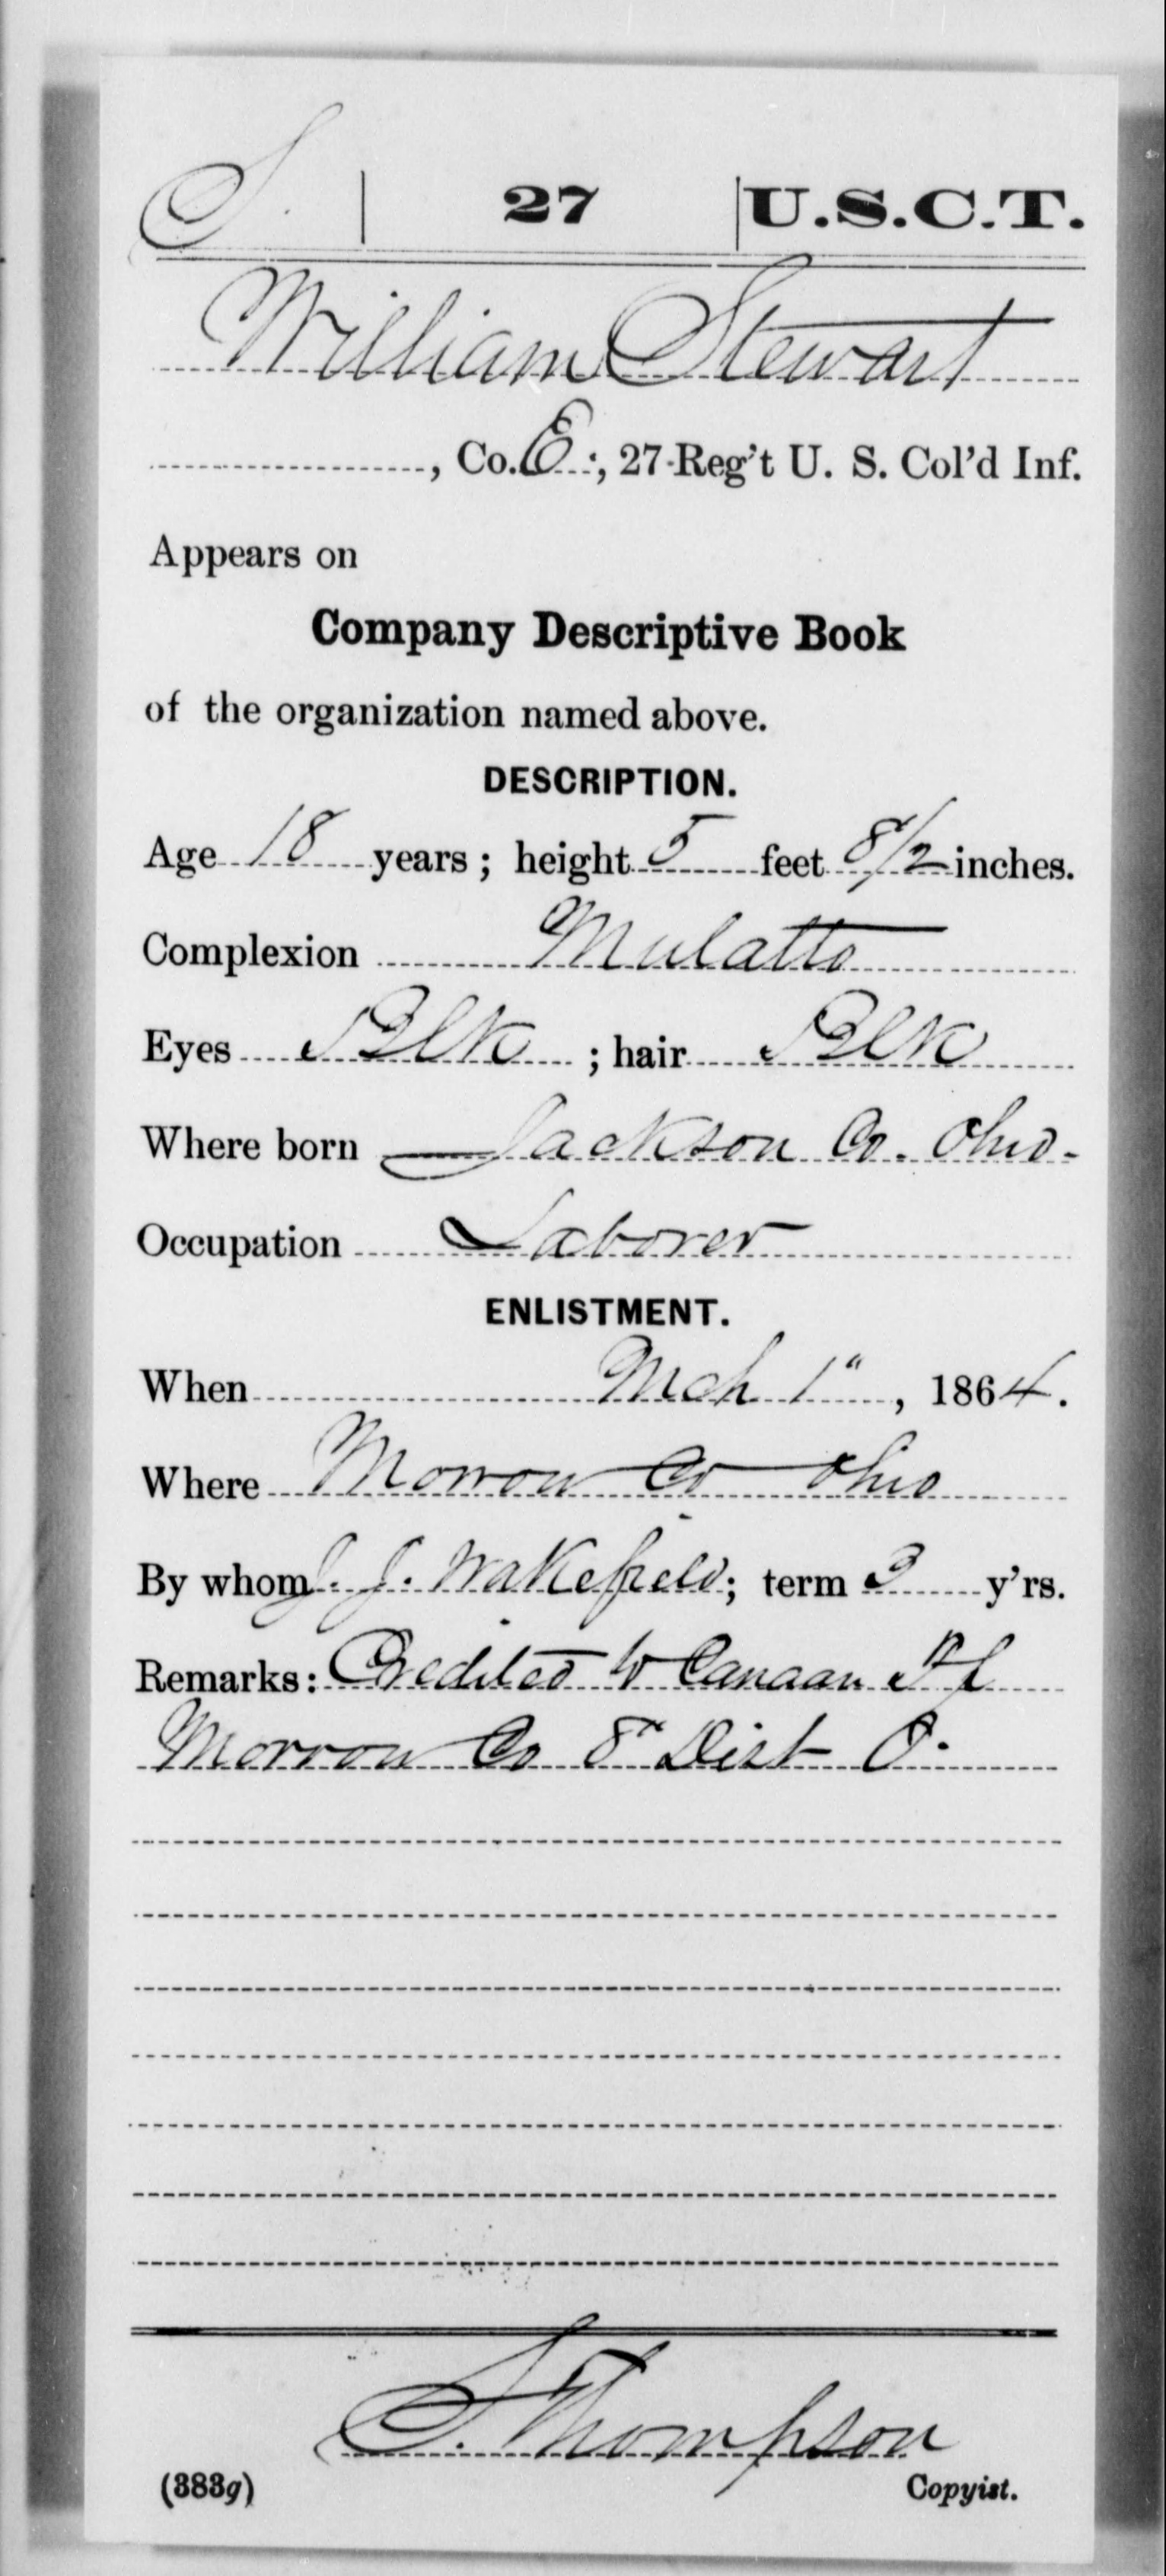 S. | 27 | U.S.C.T.
William Stewart
, Co. E., 27 Reg't U. S. Col'd Inf.
Appears on
Company Descriptive Book
of the organization named above.
DESCRIPTION.
Age 18 years; height 5 feet 8 1/2 inches.
Complexion Mulatto
Eyes Blk; hair Blk
Where born Jackson Co. Ohio.
Occupation Laborer
ENLISTMENT.
When Mch 1", 1864.
Where Morrow Co Ohio
By whom J. J. Wakefield; term 3 y'rs.
Remarks: Credited to Canaan
Morrow Co 8" Dist O.
S. Thompson
(383g) Copyist.